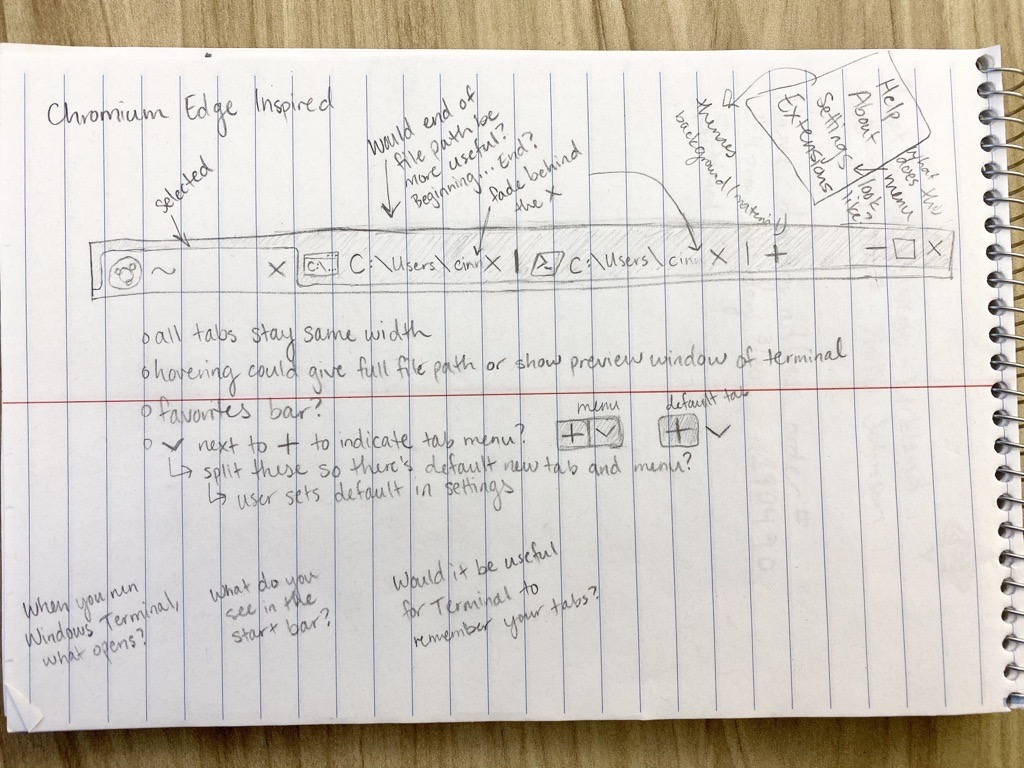 Chromium Edge Inspired
selected
Would end of
file path be
more useful?
Beginning... End?
fade behind
the X
themes
Extensions
Settings
About
Help
what does
this menu
look
like?
~ X
C:\.. C:\Users\cinn X | >_ C:\Users\cinn X | + — □ X
o all tabs stay same width
o hovering could give full file path or show preview window of terminal
o favorites bar?
o ✓ next to + to indicate tab menu?
↳ split these so there's default new tab and menu?
↳ user sets default in settings
menu
default tab
When you run
Windows Terminal,
what opens?
What do you
see in the
start bar?
Would it be useful
for Terminal to
remember your tabs?